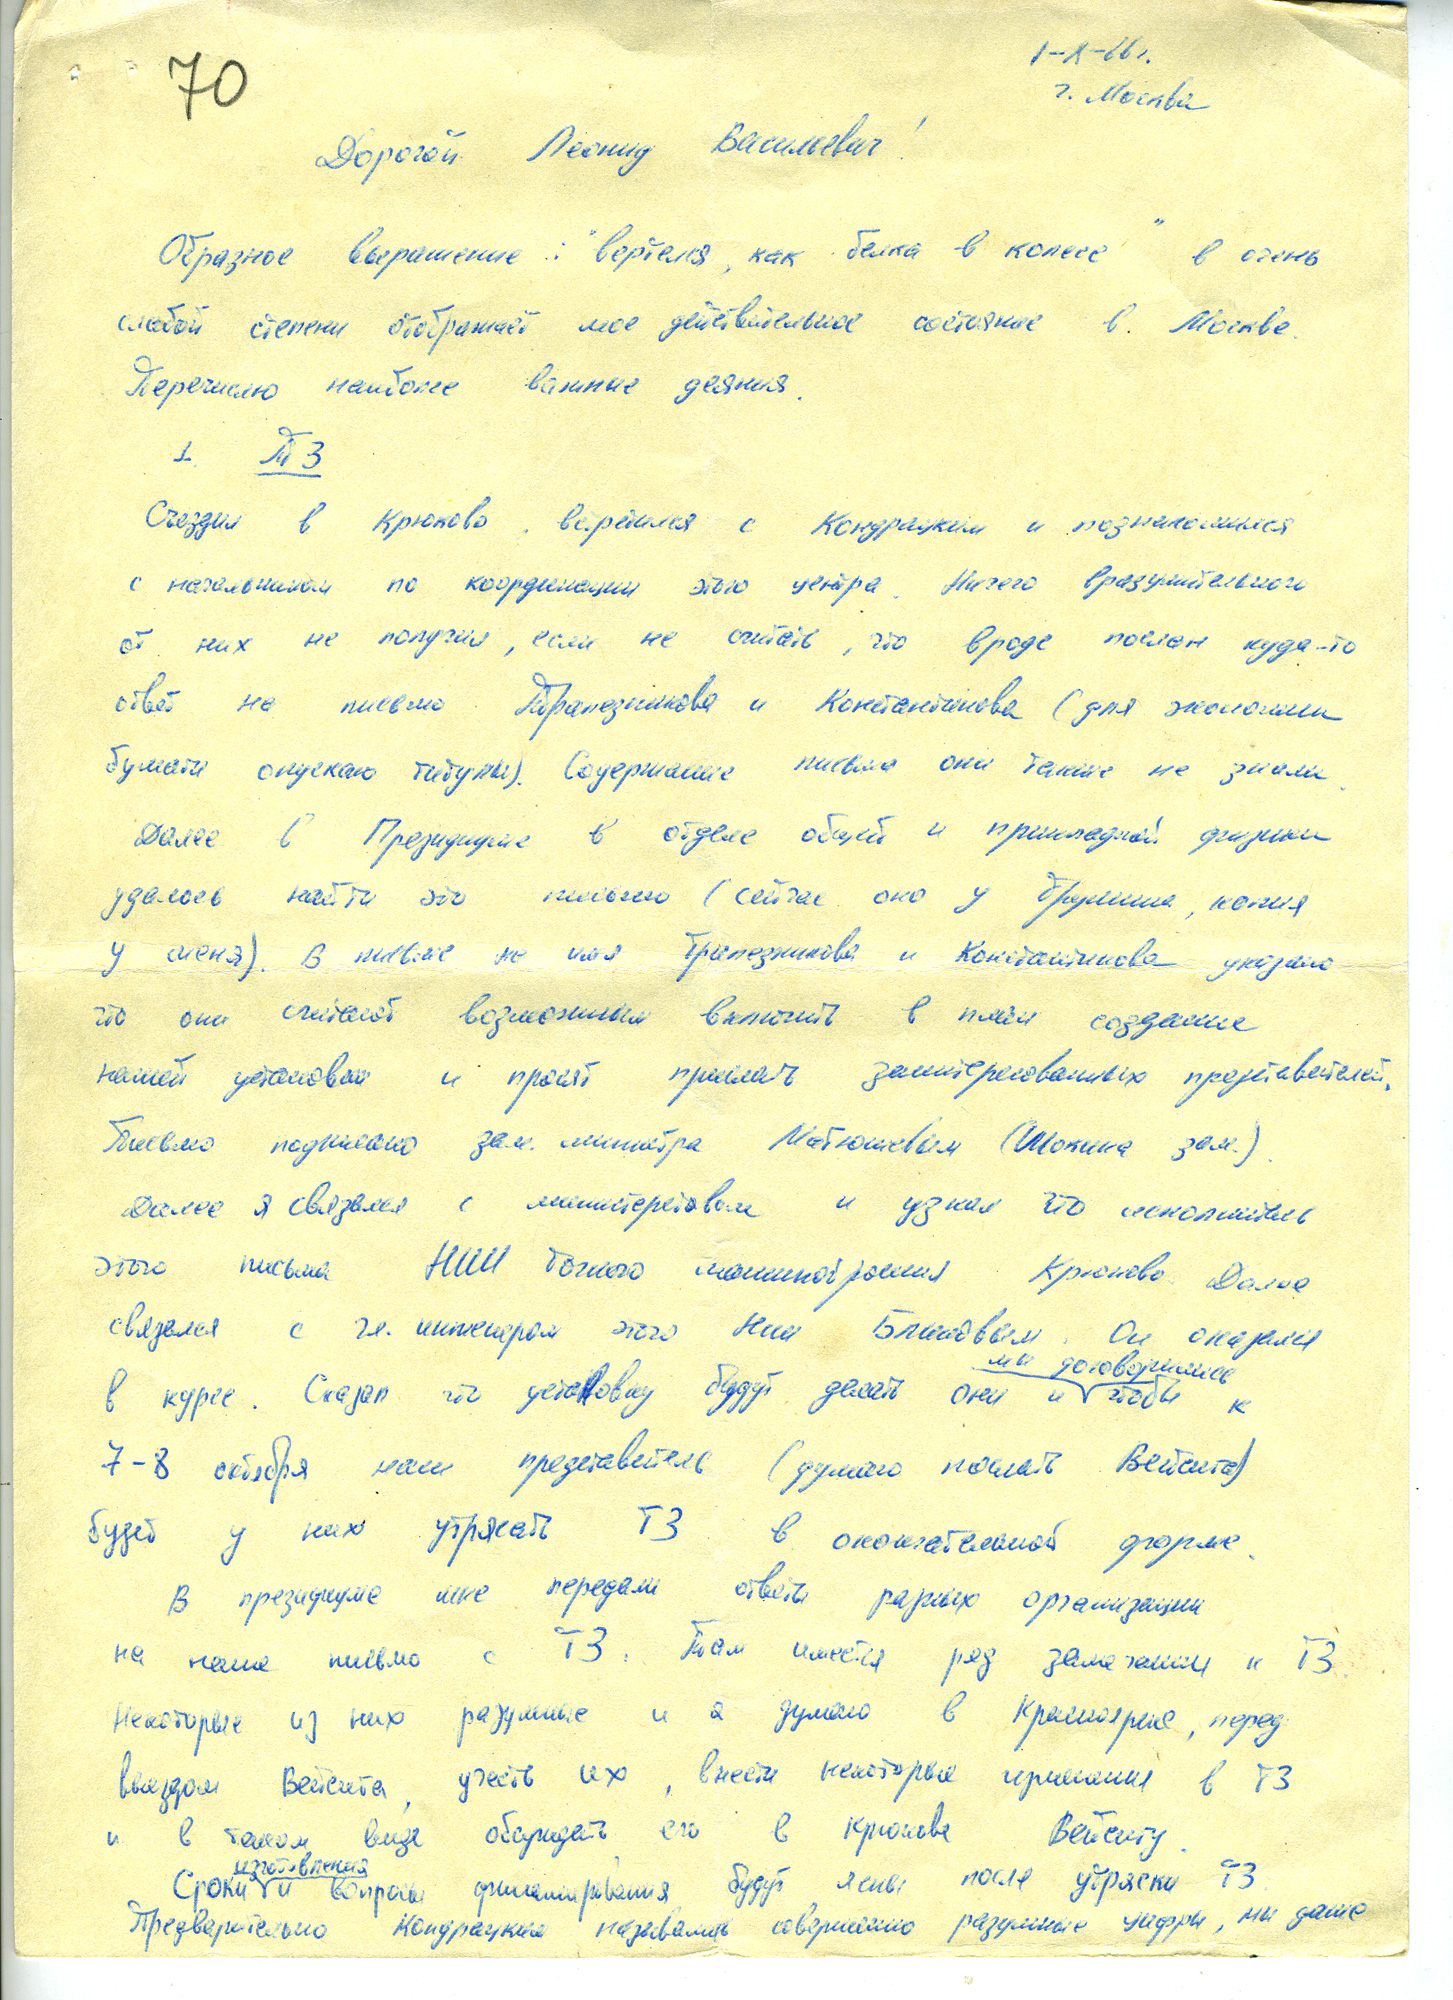 70
1-X-66 г.
г. Москва
Дорогой Леонид Васильевич!
Образное выражение: "вертелся, как белка в колесе" в очень
слабой степени отображает мое действительное состояние в Москве.
Перечислю наиболее важные деяния.
1. ТЗ
Съездил в Крюково, встретился с Кондрацким и познакомился
с начальником по координации этого центра. Ничего вразумительного
от них не получил, если не считать, что вроде послан куда-то
ответ на письмо Трапезникова и Константинова (для экономии
бумаги опускаю титулы). Содержание письма они также не знали.
Далее в Президиуме в отделе общей и прикладной физики
удалось найти это письмо (сейчас оно у , копия
у меня). В письме на имя Трапезникова и Константинова указано
что они считают возможным включить в план создание
нашей установки и просят прислать заинтересованных представителей.
Письмо подписано зам. министра Матюшевым (Шокина зам.).
Далее я связался с министерством и узнал что исполнитель
этого письма НИИ точного машиностроения Крюково. Далее
связался с гл. инженером этого НИИ . Он оказался
мы договорились
в курсе. Сказал что установку будут делать они и чтобы к
7-8 октября наш представитель (думаю послать Вейсига)
будет у них утрясать ТЗ в окончательной форме.
В президиуме мне передали ответы разных организаций
на наше письмо с ТЗ. Там имеется ряд замечаний к ТЗ.
Некоторые из них разумные и я думаю в Красноярске, перед
выездом Вейсига, учесть их, внести некоторые изменения в ТЗ
и в таком виде обсуждать его в Крюкове Вейсигу.
изготовления
Сроки и вопросы финансирования будут ясны после утряски ТЗ.
Предварительно Кондрацким назывались совершенно разумные цифры, мы даже